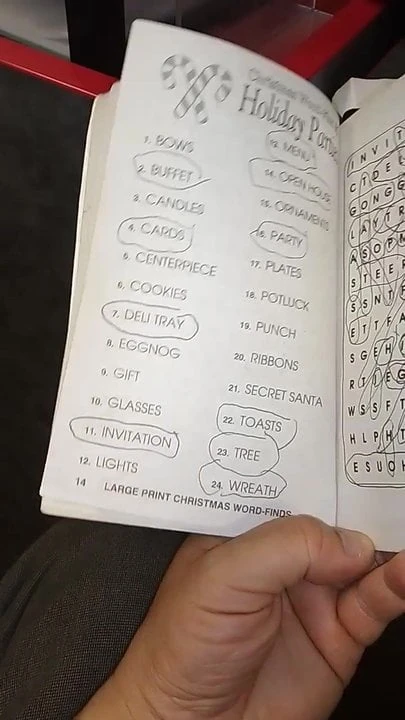 Holiday
1. BOWS
2. BUFFET
3. CANDLES
4. CARDS
5. CENTERPIECE
6. COOKIES
7. DELI TRAY
8. EGGNOG
9. GIFT
10. GLASSES
11. INVITATION
12. LIGHTS
13. MENU
14. OPEN HOUSE
15. ORNAMENTS
16. PARTY
17. PLATES
18. POTLUCK
19. PUNCH
20. RIBBONS
21. SECRET SANTA
22. TOASTS
23. TREE
24. WREATH
14 LARGE PRINT CHRISTMAS WORD-FINDS
I N V I T